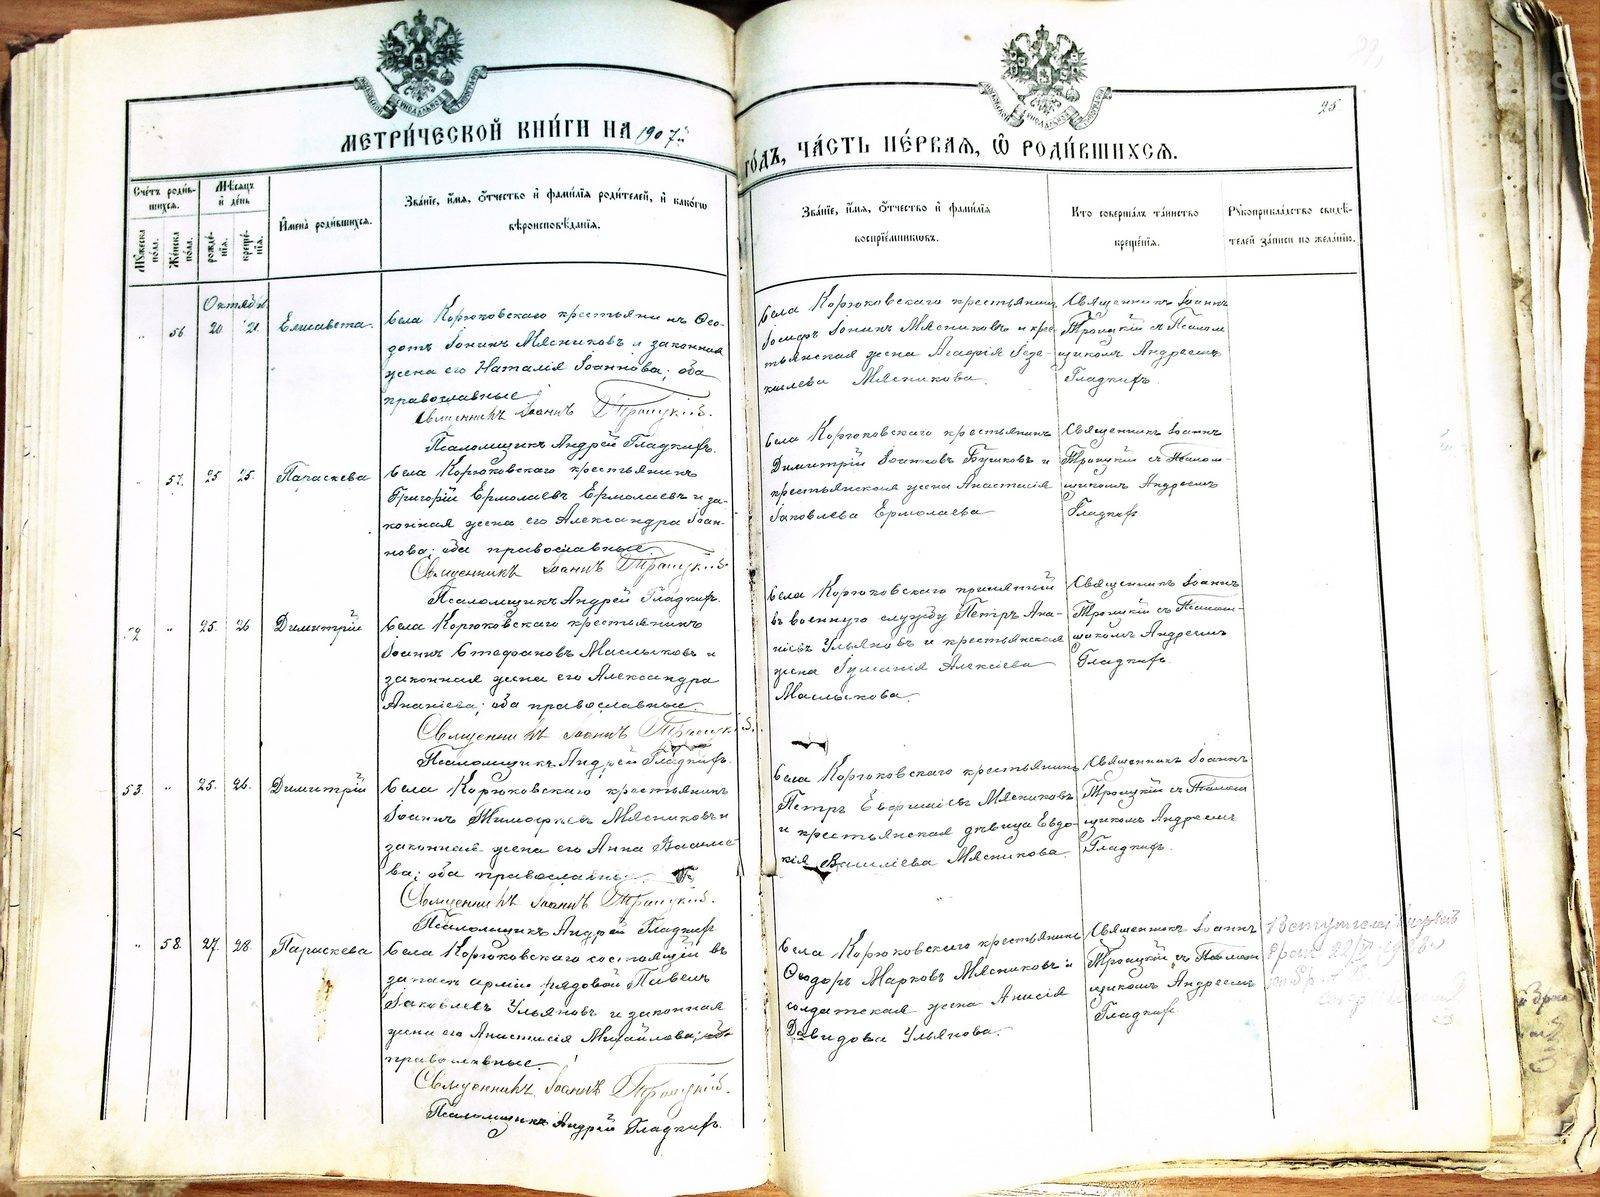 МЕТРИ́ЧЕСКОЙ КНИ́ГИ НА 1907й
ГО́ДЪ, ЧА́СТЬ ПЕ́РВАЯ, Ѿ РОДИ́ВШИХСЯ.
25
Сче́тъ роди́в-
шихся.
Му́жеска по́ла.
Же́нска по́ла.
Мѣ́сяцъ и де́нь
рожде́-
нія.
креще́-
нія.
И́мена роди́вшихся.
Зва́ніе, и́мя, о́тчество и фами́лія роди́телей, и како́гѡ
вѣроисповѣ́данія.
Зва́ніе, и́мя, о́тчество и фами́лія
воспріе́мниковъ.
Кто соверша́лъ та́инство
креще́нія.
Рукоприкла́дство свидѣ́-
телей за́писи по жела́нію.
Октября
" 56 20 21. Елисавета.
Села Корюковскаго крестьянинъ Ѳео-
дотъ Іонинъ Мясниковъ и законная
жена его Наталія Іоаннова; оба
православные
Священникъ Іоаннъ Троицкій.
Псаломщикъ Андрей Гладкихъ.
Села Корюковскаго крестьянинъ
Іосифъ Іонинъ Мясниковъ и кре-
стьянская жена Агафія Іезе-
кіилева Мясникова.
Священникъ Іоаннъ
Троицкій съ Псалом
щикомъ Андреемъ
Гладкихъ.
" 57. 25 25. Параскева
Села Корюковскаго крестьянинъ
Григорій Ермолаевъ Ермолаевъ и за-
конная жена его Александра Іоан-
нова; оба православные.
Священникъ Іоаннъ Троицкій
Псаломщикъ Андрей Гладкихъ.
Села Корюковскаго крестьянинъ
Димитрій Іоанновъ Бушковъ и
крестьянская жена Анастасія
Іаковлева Ермолаева
Священникъ Іоаннъ
Троицкій съ Псалом-
щикомъ Андреемъ
Гладкихъ
52 " 25. 26 Димитрій
Села Корюковскаго крестьянинъ
Іоаннъ Стефановъ Маслыковъ и
законная жена его Александра
Ананіева; оба православные.
Священникъ Іоаннъ Троицкій.
Псаломщикъ Андрей Гладкихъ.
Села Корюковскаго принятый
въ военную службу Петръ Ана-
ніевъ Ульяновъ и крестьянская
жена Іуліанія Алексіева
Маслыкова.
Священникъ Іоаннъ
Троицкій съ Псалом-
щикомъ Андреемъ
Гладкихъ
53. " 25. 26. Димитрій
Села Корюковскаго крестьянинъ
Іоаннъ Тимоѳеевъ Мясниковъ и
законная жена его Анна Василіе
ва; оба православные.
Священникъ Іоаннъ Троицкій.
Псаломщикъ Андрей Гладкихъ
Села Корюковскаго крестьянинъ
Петръ Евфиміевъ Мясниковъ
и крестьянская дѣвица Евдо-
кія Василіева Мясникова.
Священникъ Іоаннъ
Троицкій съ Псалом
щикомъ Андреемъ
Гладкихъ.
" 58. 27. 28 Параскева
Села Корюковскаго состоящій въ
запасѣ арміи рядовой Павелъ
Іаковлевъ Ульяновъ и законная
жена его Анастасія Михайлова; оба
православные.
Священникъ Іоаннъ Троицкій.
Псаломщикъ Андрей Гладкихъ.
Села Корюковскаго крестьянинъ
Ѳеодоръ Марковъ Мясниковъ и
солдатская жена Анисія
Давидова Ульянова.
Священникъ Іоаннъ
Троицкій съ Псалом
щикомъ Андреемъ
Гладкихъ